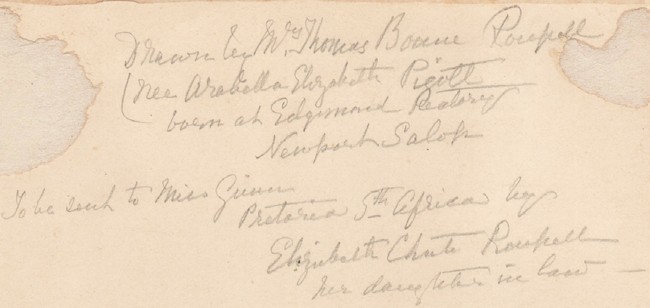 Drawn by Mrs Thomas Boone Roupell
(nee Arabella Elizabeth Pigott
born at Edgmond Rectory
Newport Salop
To be sent to Miss Gunn
Pretoria Sth Africa by
Elizabeth Chute Roupell
her daughter in law —